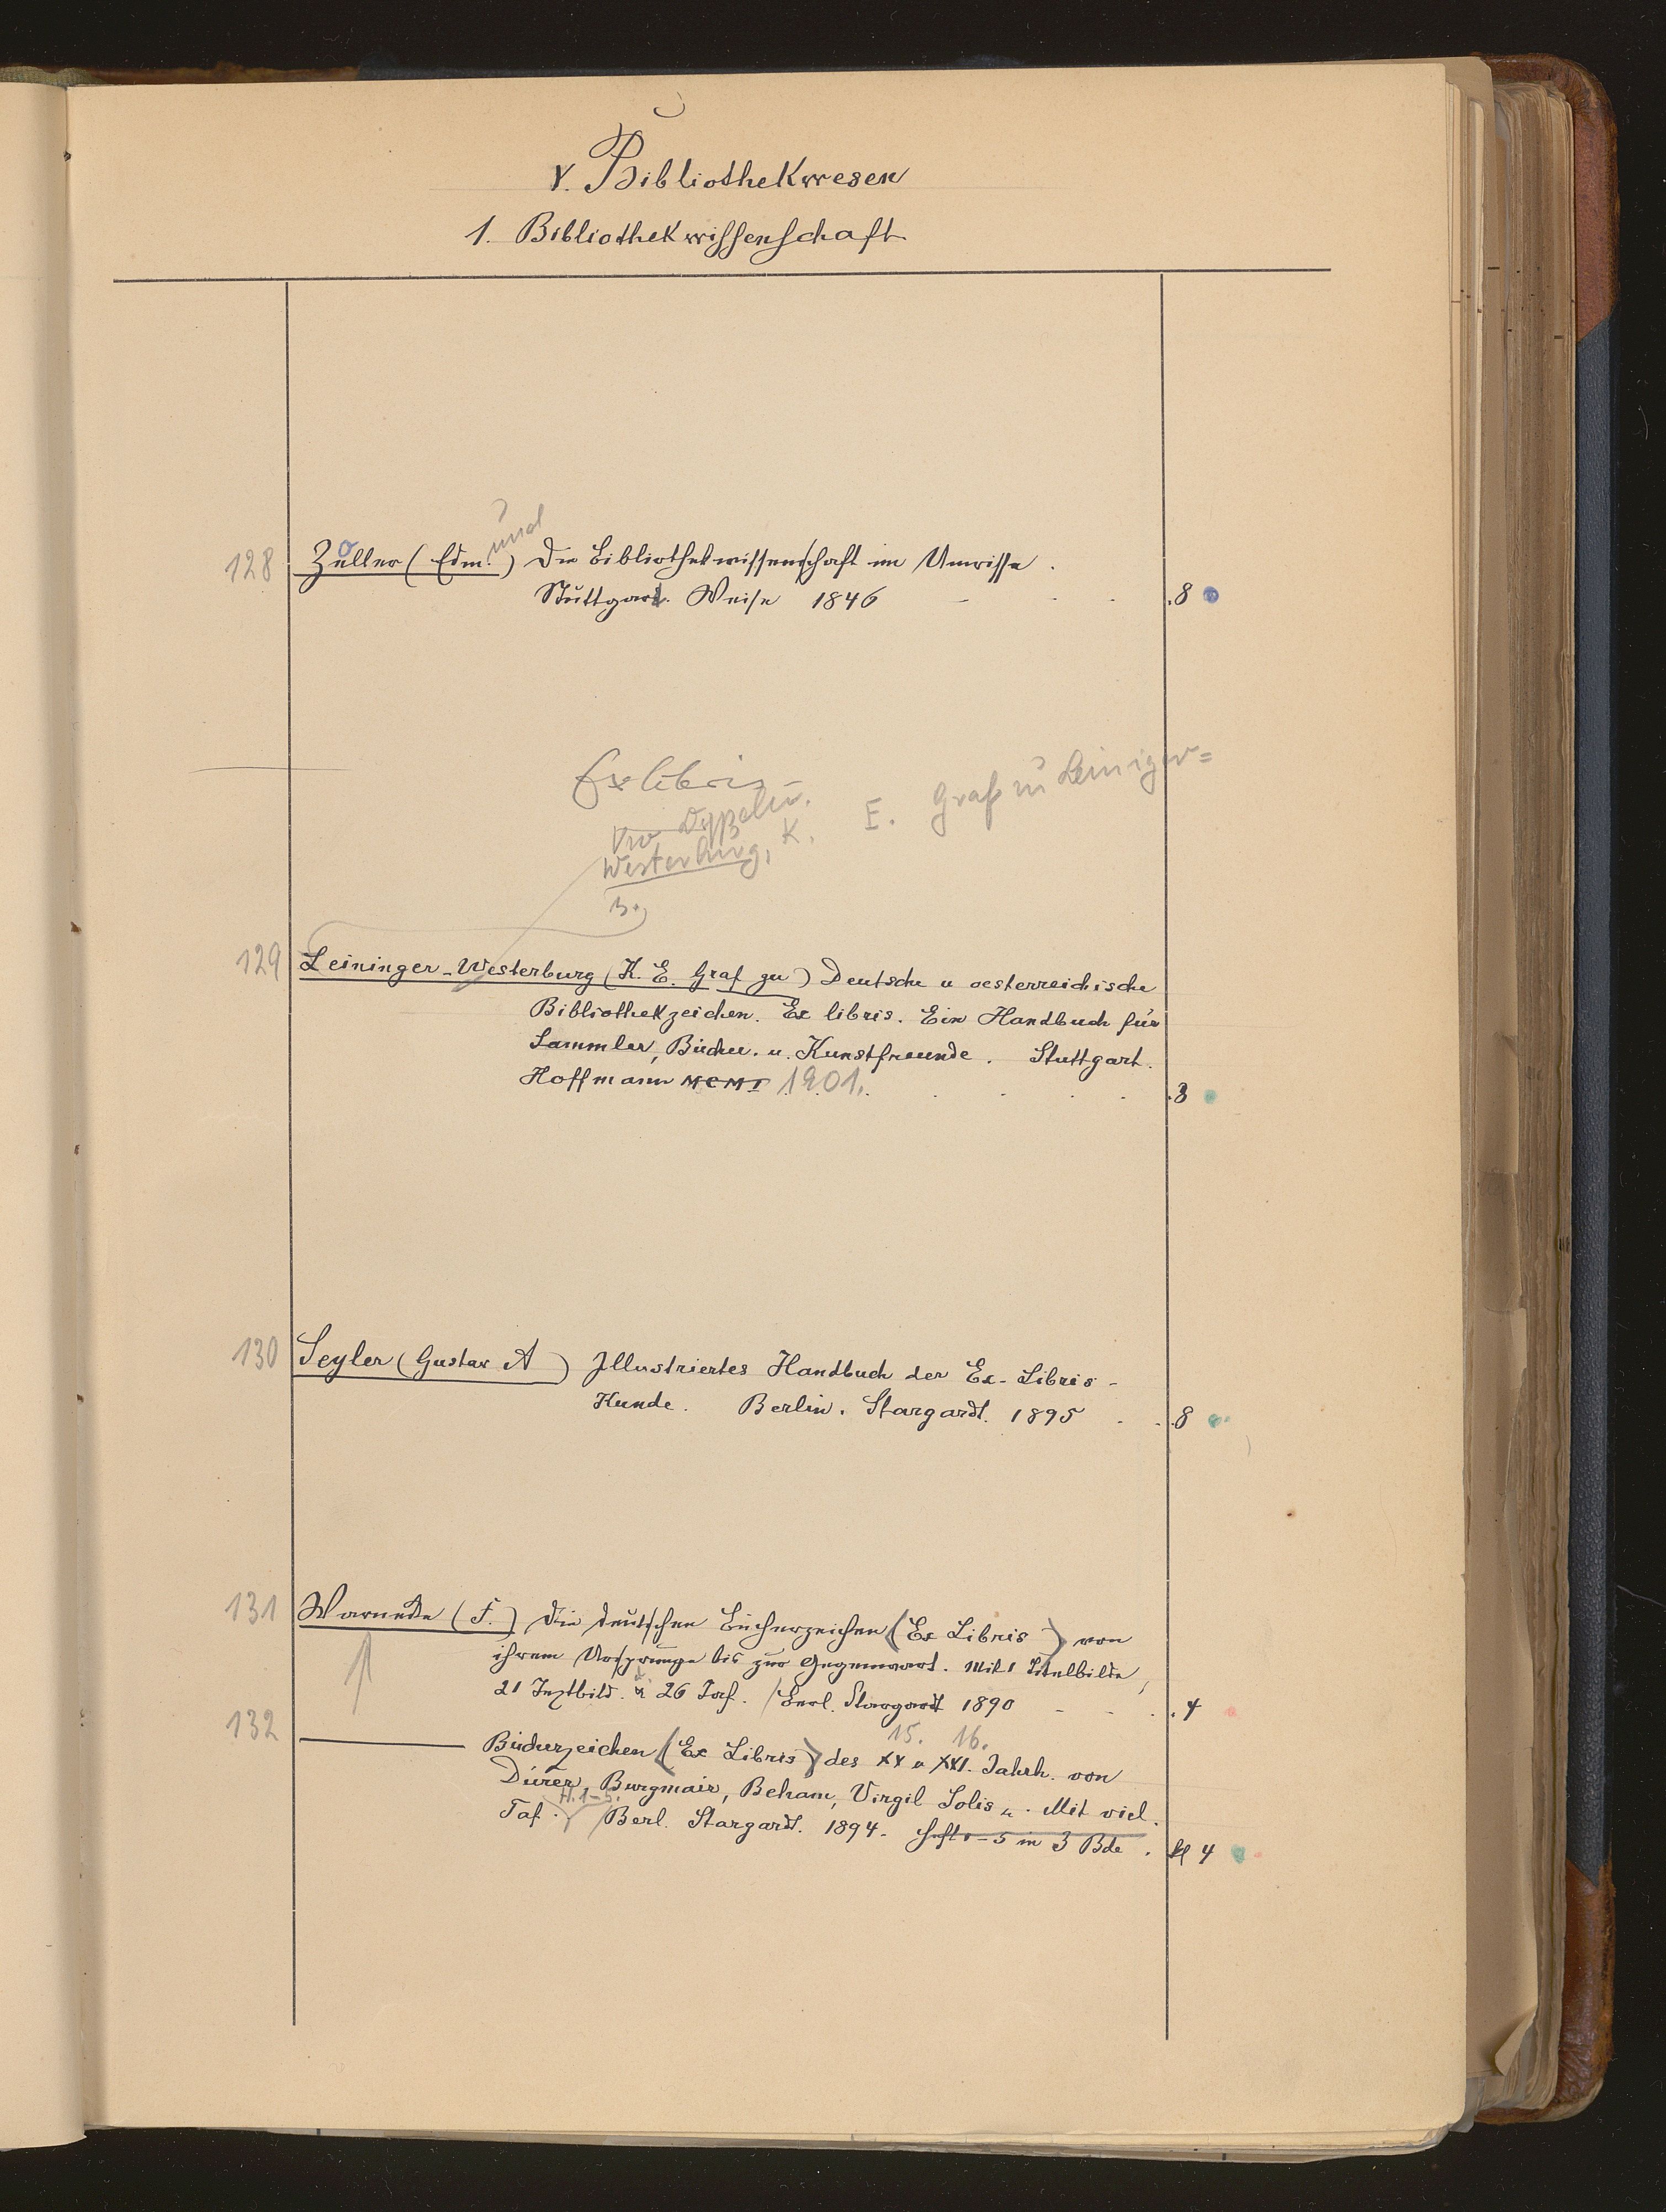 V. Bibliothekwesen
1. Bibliothekwissenschaft
und
128 Zoller (Edm.) Die Bibliothekwissenschaft im Umrisse.
Stuttgart. Weise 1846 . 8
Exlibris
E. Graf zu Leiniger=
Westerburg, K.
129 Leininger-Westerburg (K. E. Graf zu) Deutsche u oesterreichische
Bibliothekzeichen. Ex libris. Ein Handbuch für
Sammler, Bücher. u. Kunstfreunde. Stuttgart.
Hoffmann MCMI 1901. . 8
130 Seyler (Gustav A) Illustriertes Handbuch der Ex-Libris-
Kunde. Berlin. Stargardt. 1895 . 8
131 Warnecke (F.) Die deutschen Bücherzeichen (Ex Libris) von
ihrem Ursprunge bis zur Gegenwart. Mit 1 Titelbilde,
21 Textbild. u 26 Taf. / Berl. Stargardt 1890 . 4
15. 16.
132 ——— Bücherzeichen (Ex Libris) des XV u XVI. Jahrh. von
Dürer, Burgmair, Beham, Virgil Solis u. Mit viel.
H. 1-5.
Taf. / Berl. Stargardt. 1894. Heft 1-5 in 3 Bde . 4